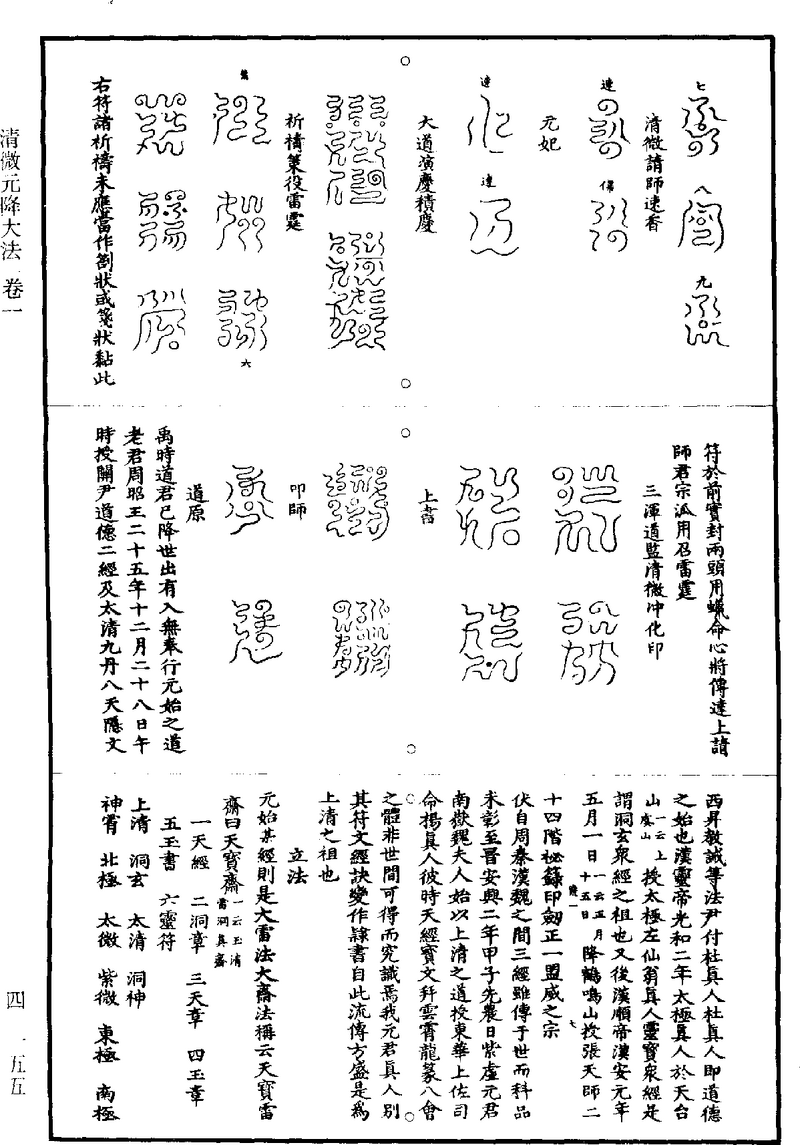 清微元降大法 卷一
七
八
九
清微請師速香
達
傷
元妃
達
達
大道演慶積慶
祈禱策役雷霆
六
右符諸祈禱未應當作劄狀或箋狀黏此
符於前實封兩頭用蠟命心將傳達上請
師君宗派用召雷霆
三渾道監清微沖化印
上嗇
叩師
道原
禹時道君已降世出有入無奉行元始之道
老君周昭王二十五年十二月二十八日午
時授關尹道德二經及太清九丹八天隱文
西昇教誡等法尹付杜真人杜真人即道德
之始也漢靈帝光和二年太極真人於天台
山一云上虞山授太極左仙翁真人靈寶衆經是
謂洞玄衆經之祖也又後漢順帝漢安元年
五月一日一云正月十五日降鶴鳴山授張天師二
十四階秘籙印劒正一盟威之宗
伏自周秦漢魏之間三經雖傳于世而科品
未彰至晉安興二年甲子先農日紫虛元君
南嶽魏夫人始以上清之道授東華上佐司
命楊真人彼時天經寶文幷雲霄龍篆八會
之體非世間可得而究識焉我元君真人別
其符文經訣變作隷書自此流傳方盛是爲
上清之祖也
立法
元始某經則是大雷法大齋法稱云天寶雷
齋曰天寶齋一云玉清雷洞真齋
一天經 二洞章 三天章 四玉章
五玉書 六靈符
上清 洞玄 太清 洞神
神霄 北極 太微 紫微 東極 南極
四 一五五